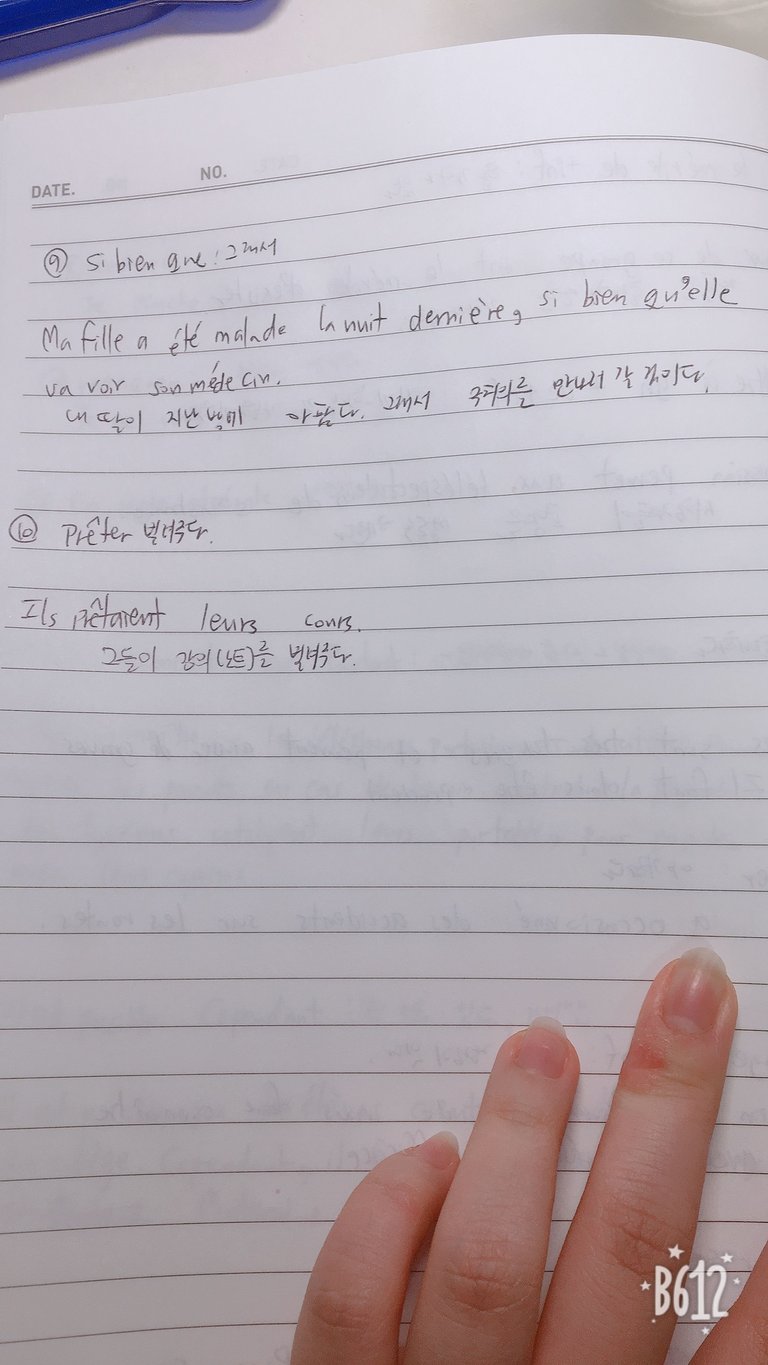 DATE.
NO.
⑨ Si bien que : 그래서
Ma fille a été malade la nuit dernière, si bien qu'elle
va voir son médecin.
내 딸이 지난 밤에 아팠다. 그래서 를 만나러 갈 것이다.
⑩ Prêter 빌려주다.
Ils prêtaient leurs cours.
그들이 강의(노트)를 빌려주다.
B612